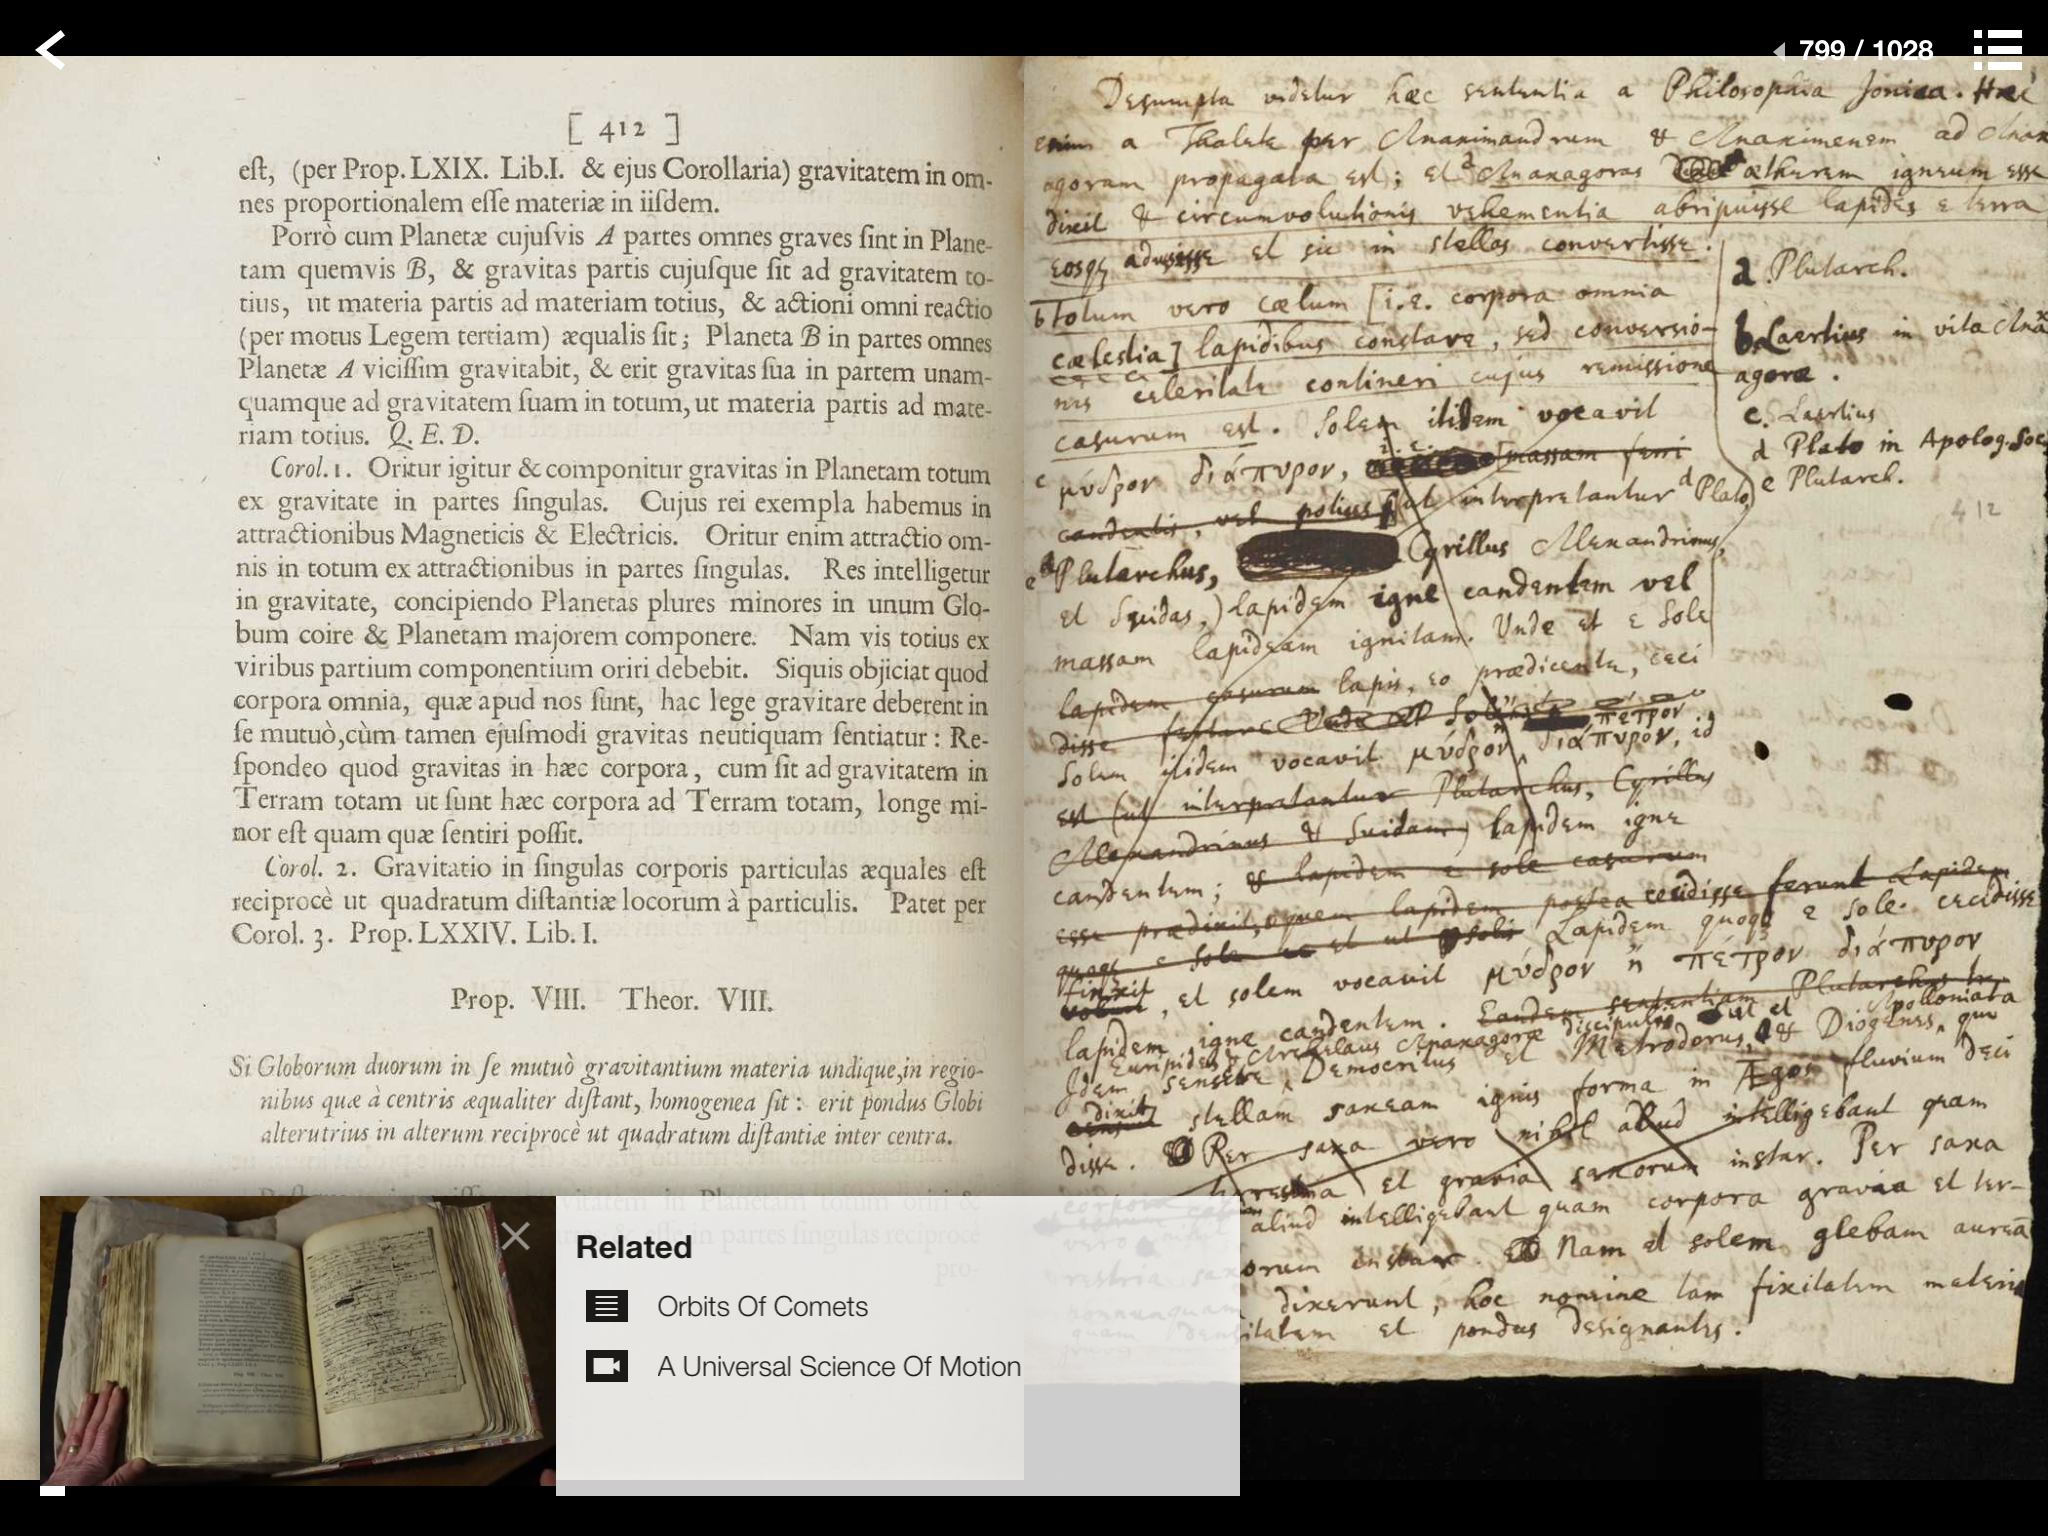 799 / 1028
[ 412 ]
eſt, (per Prop. LXIX. Lib. I. & ejus Corollaria) gravitatem in om-
nes proportionalem eſſe materiæ in iiſdem.
Porrò cum Planetæ cujuſvis A partes omnes graves ſint in Plane-
tam quemvis B, & gravitas partis cujuſque ſit ad gravitatem to-
tius, ut materia partis ad materiam totius, & actioni omni reactio
(per motus Legem tertiam) æqualis ſit; Planeta B in partes omnes
Planetæ A viciſſim gravitabit, & erit gravitas ſua in partem unam-
quamque ad gravitatem ſuam in totum, ut materia partis ad mate-
riam totius. Q. E. D.
Corol. 1. Oritur igitur & componitur gravitas in Planetam totum
ex gravitate in partes ſingulas. Cujus rei exempla habemus in
attractionibus Magneticis & Electricis. Oritur enim attractio om-
nis in totum ex attractionibus in partes ſingulas. Res intelligetur
in gravitate, concipiendo Planetas plures minores in unum Glo-
bum coire & Planetam majorem componere. Nam vis totius ex
viribus partium componentium oriri debebit. Siquis objiciat quod
corpora omnia, quæ apud nos ſunt, hac lege gravitare deberent in
ſe mutuò, cùm tamen ejuſmodi gravitas neutiquam ſentiatur: Re-
ſpondeo quod gravitas in hæc corpora, cum ſit ad gravitatem in
Terram totam ut ſunt hæc corpora ad Terram totam, longe mi-
nor eſt quam quæ ſentiri poſſit.
Corol. 2. Gravitatio in ſingulas corporis particulas æquales eſt
reciprocè ut quadratum diſtantiæ locorum à particulis. Patet per
Corol. 3. Prop. LXXIV. Lib. I.
Prop. VIII. Theor. VIII.
Si Globorum duorum in ſe mutuò gravitantium materia undique, in regio-
nibus quæ à centris æqualiter diſtant, homogenea ſit: erit pondus Globi
alterutrius in alterum reciprocè ut quadratum diſtantiæ inter centra.
pro-
Desumpta videtur hæc sententia a Philosophia Jonica. Hæc
enim a Thalete per Anaximandrum & Anaximenem ad Anax
agoram propagata est; et a Anaxagoras ætherem igneum esse
dixit & circumvolutionis vehementia abripuisse lapides e terra
eosq adussisse et sic in stellas convertisse.
b Totum vero cælum [i.e. corpora omnia
cælestia] lapidibus constare, sed conversio-
nis celeritate contineri cujus remissione
casurum est. Solem itidem vocavit
c μύδρον διάπυρον, i.e. [massam ferri
candentis, vel potius ut interpretantur d Plato,
e Plutarchus, Cyrillus Alexandrinus,
et Suidas,) lapidem igne candentem vel
massam lapideam ignitam. Unde et e Sole
lapidem casurum lapis, eo prædicente, ceci
disse fertur πέτρον
Solem itidem vocavit μύδρον διάπυρον, id
est (ut interpretantur Plutarchus, Cyrillus
Alexandrinus & Suidam) lapidem igne
candentem; & lapidem e sole casurum
esse prædixit, quem lapidem postea cecidisse ferunt Lapidem
quoqe e Sole et ut solis Lapidem quoq e Sole cecidisse
finxit, et solem vocavit μύδρον ἢ πέτρον διάπυρον
lapidem igne candentem. Eandem sententiam Plutarchus
Euripides & Archelaus Anaxagoræ discipulis et Apolloniata
Idem sensere, Democritus et Metrodorus, & Diogenes, qui
dixit stellam saxeam ignis forma in Ægos fluvium deci
disse. Per saxa vero nihil aliud intelligebant quam
corpora terrestria et gravia saxorum instar. Per saxa
vero aliud intelligebant quam corpora gravia et ter-
restria saxorum instar. Nam et solem glebam aurea
nonnunquam dixerunt, hoc nomine tam fixitatem materiæ
quam densitatem et pondus designantes.
a. Plutarch.
b. Laertius in vita Anax
agoræ.
c. Laertius
d Plato in Apolog. Soc
e Plutarch.
412
Related
Orbits Of Comets
A Universal Science Of Motion